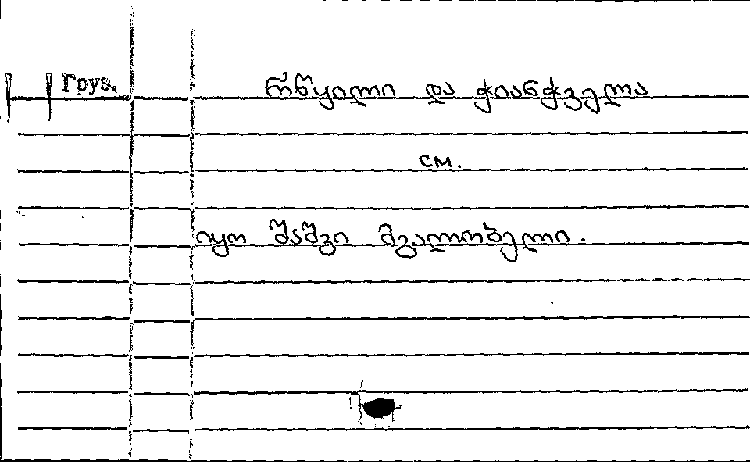 Груз.
რწყილი და ჭიანჭველა
см.
იყო შაშვი მგალობელი.